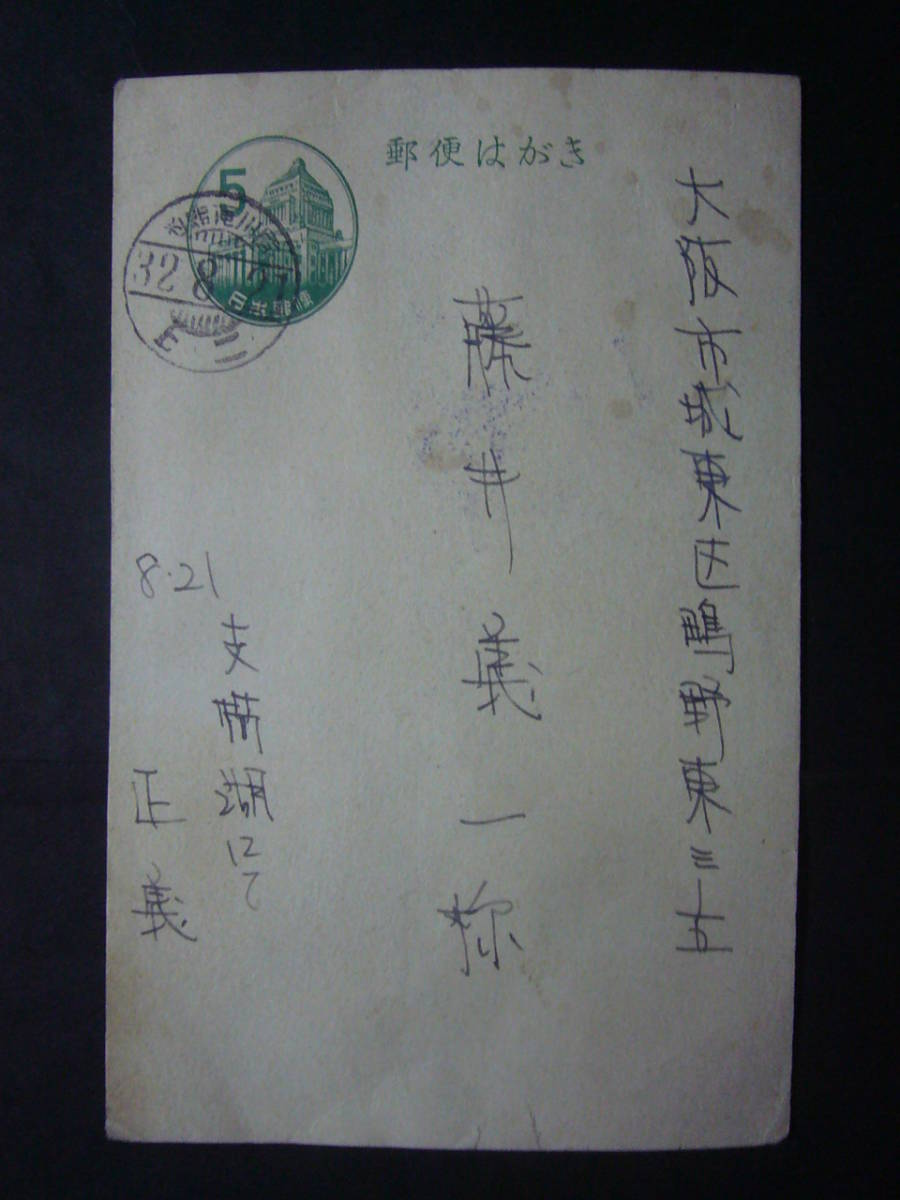 郵便はがき
5
日本郵便
32 8 21
大阪市城東区鴫野東三ノ五
藤井義一 様
8.21
支笏湖にて
正義